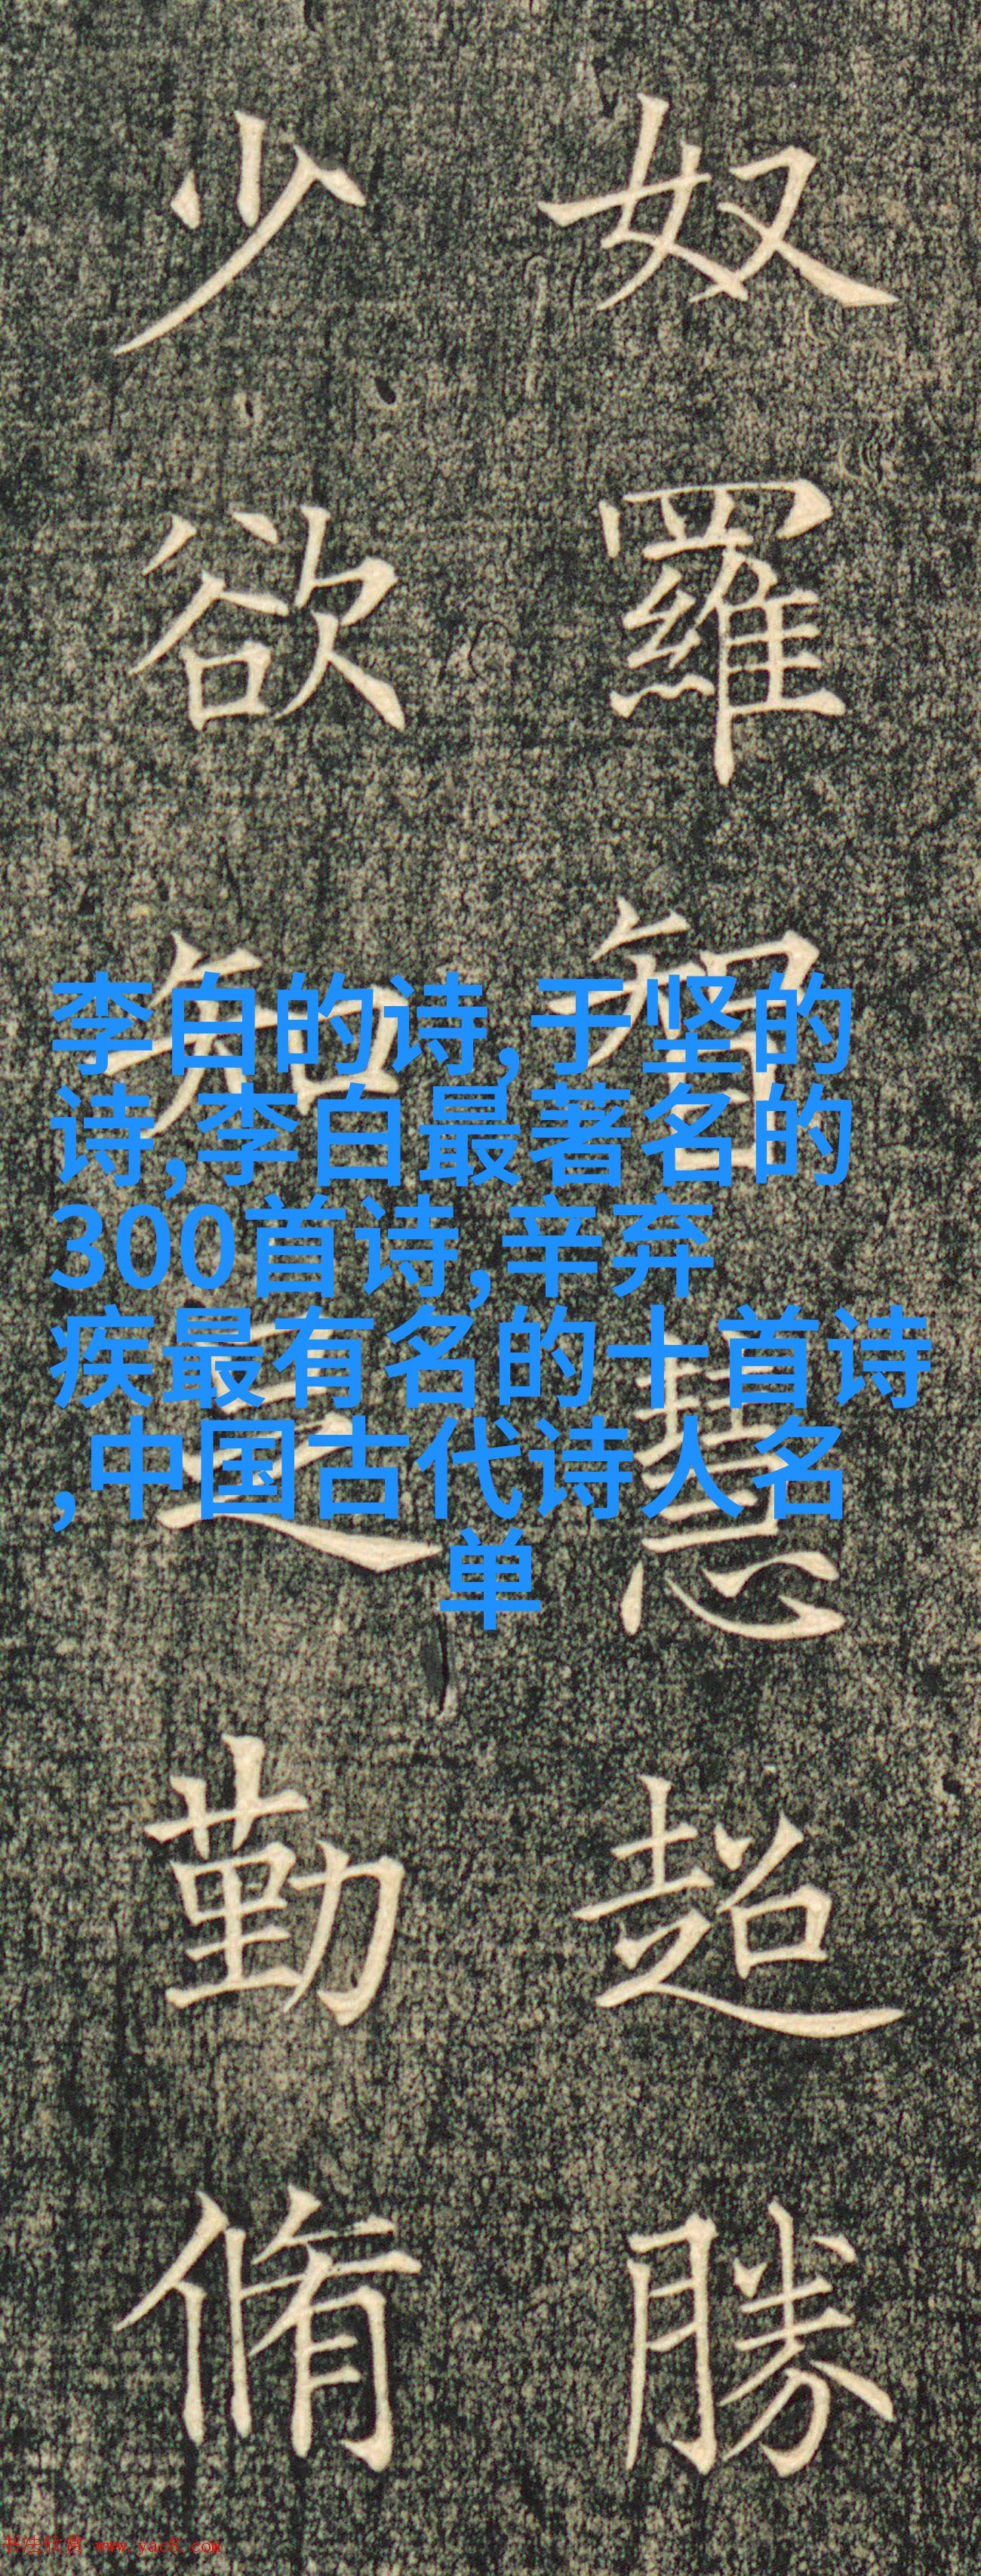 奴羅智慧超勝
少欲知足勤脩
李白的诗,于坚的
诗,李白最著名的
300首诗,辛弃
疾最有名的十首诗
,中国古代诗人名
单
书法欣赏 www.yac8.com